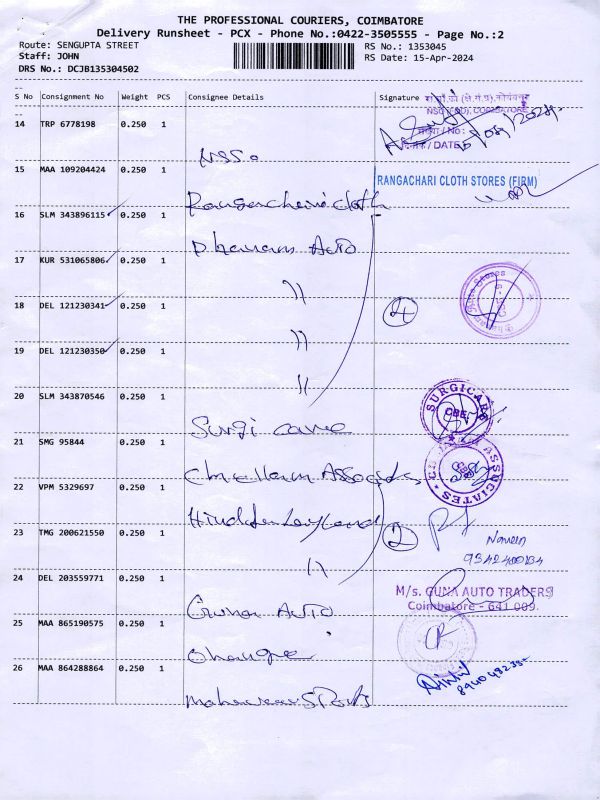 THE PROFESSIONAL COURIERS, COIMBATORE
Delivery Runsheet - PCX - Phone No.:0422-3505555 - Page No.:2
Route: SENGUPTA STREET
RS No.: 1353045
Staff: JOHN
RS Date: 15-Apr-2024
DRS No.: DCJB135304502
S No Consignment No Weight PCS Consignee Details Signature
NSSO (FOD), COIMBATORE
/ No :
/ DATE
14 TRP 6778198 0.250 1
NSSO
15 MAA 109204424 0.250 1
RANGACHARI CLOTH STORES (FIRM)
Rangachari cloth
16 SLM 343896115 0.250 1
Dhanam Auto
17 KUR 531065806 0.250 1
"
18 DEL 121230341 0.250 1
4
"
19 DEL 121230350 0.250 1
"
20 SLM 343870546 0.250 1
SURGICARE
CBE
Surgi care
21 SMG 95844 0.250 1
ASSOCIATES
Chellam Associates
22 VPM 5329697 0.250 1
Hinduja Leyland
23 TMG 200621550 0.250 1
2
Naveen
"
24 DEL 203559771 0.250 1
M/s. GUNA AUTO TRADERS
Coimbatore - 641 009.
Guna Auto
25 MAA 865190575 0.250 1
Change
26 MAA 864288864 0.250 1
Mahaveer Sports